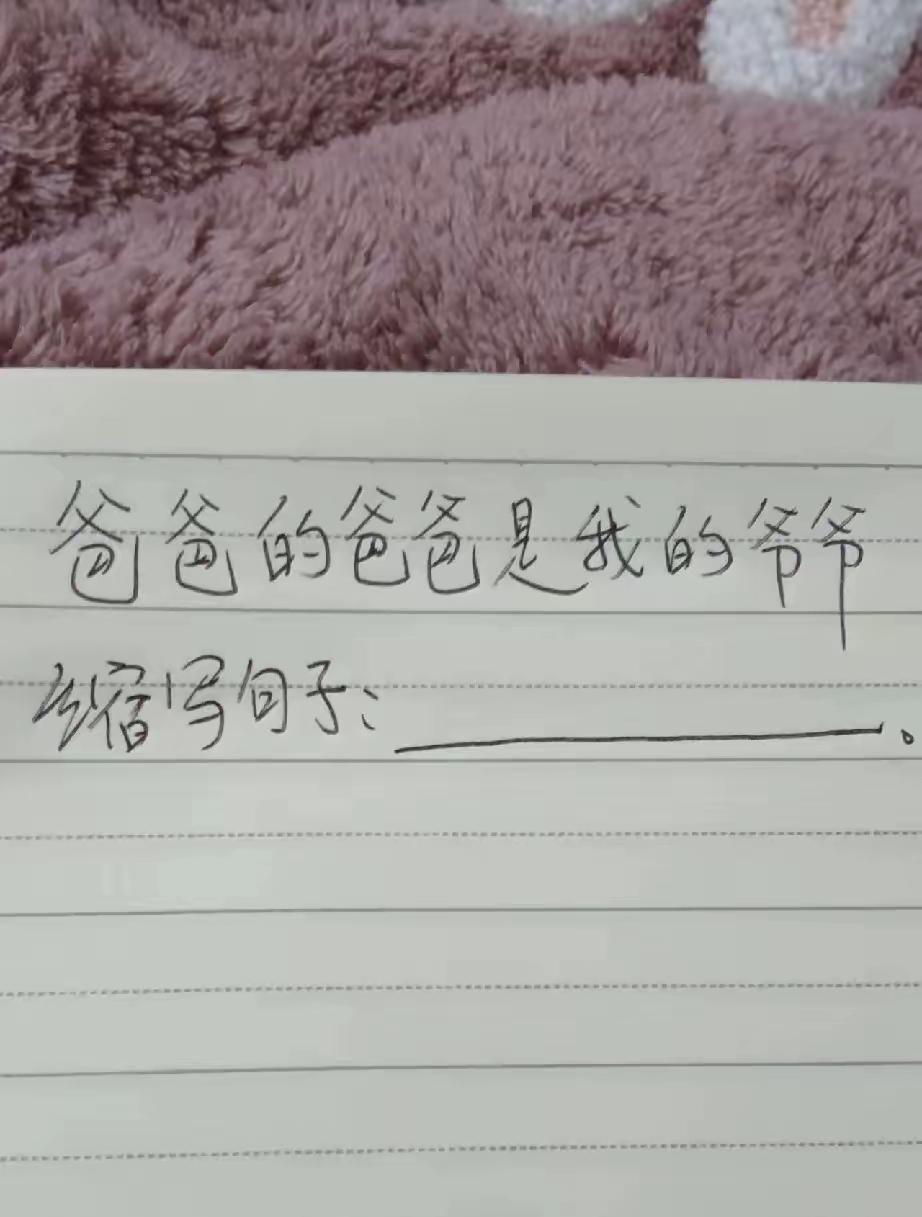 爸爸的爸爸是我的爷爷
缩写句子:________。